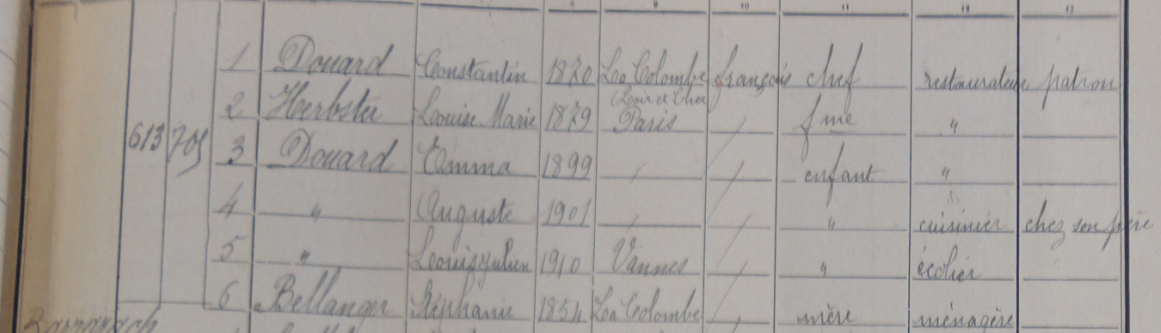 8 9 10 11 12 13
1 Douard Constantin 1870 La Colombe français chef restaurateur patron
(Loir et Cher)
2 Herbster Louise Marie 1879 Paris / fme "
613 705 3 Douard Emma 1899 , / enfant "
4 " Auguste 1901 , / " cuisinier chez son père
5 " Louis Julien 1910 Vannes / " écolier
6 Bellanger Stéphanie 1854 La Colombe / mère ménagère